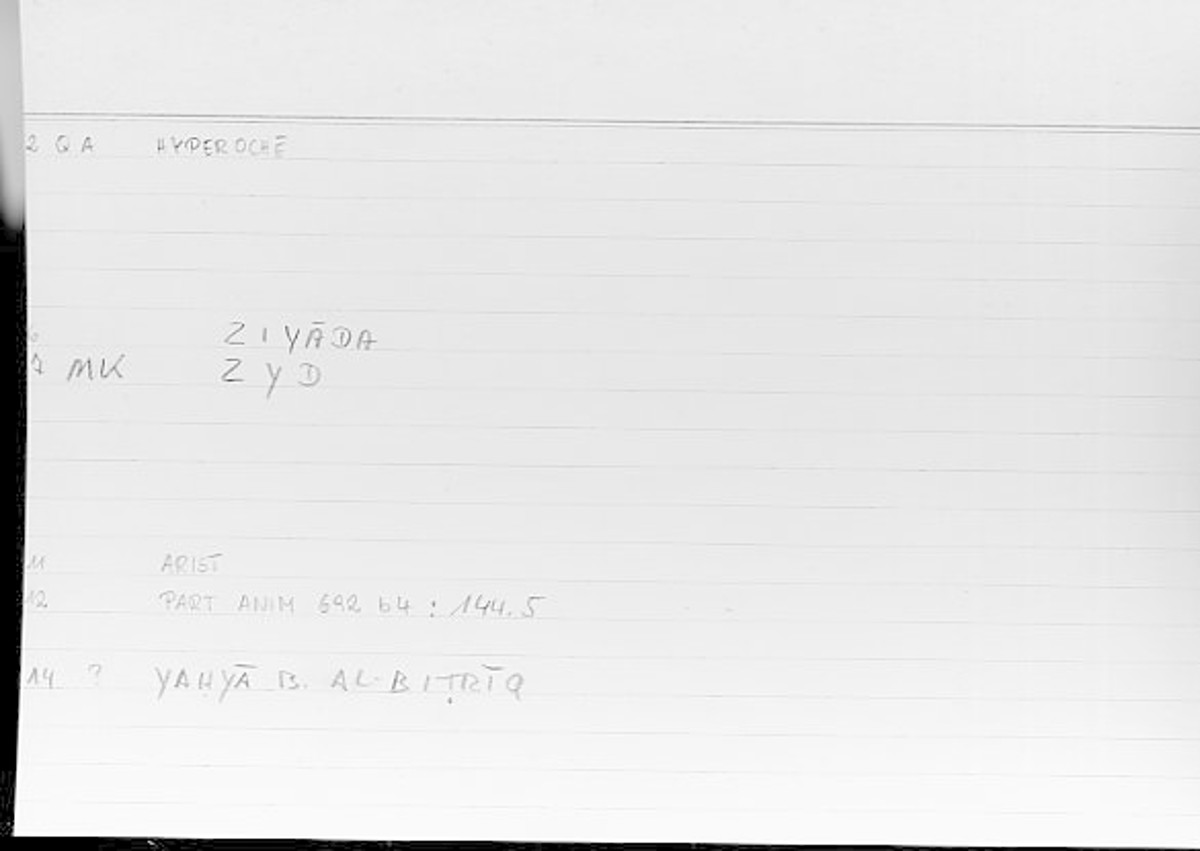 2 Q A HYPEROCHĒ
6 ZIYĀDA
7 MK ZYD
11 ARIST
12 PART ANIM 692 b4 : 144.5
14 ? YAḤYĀ B. AL-BIṬRĪQ